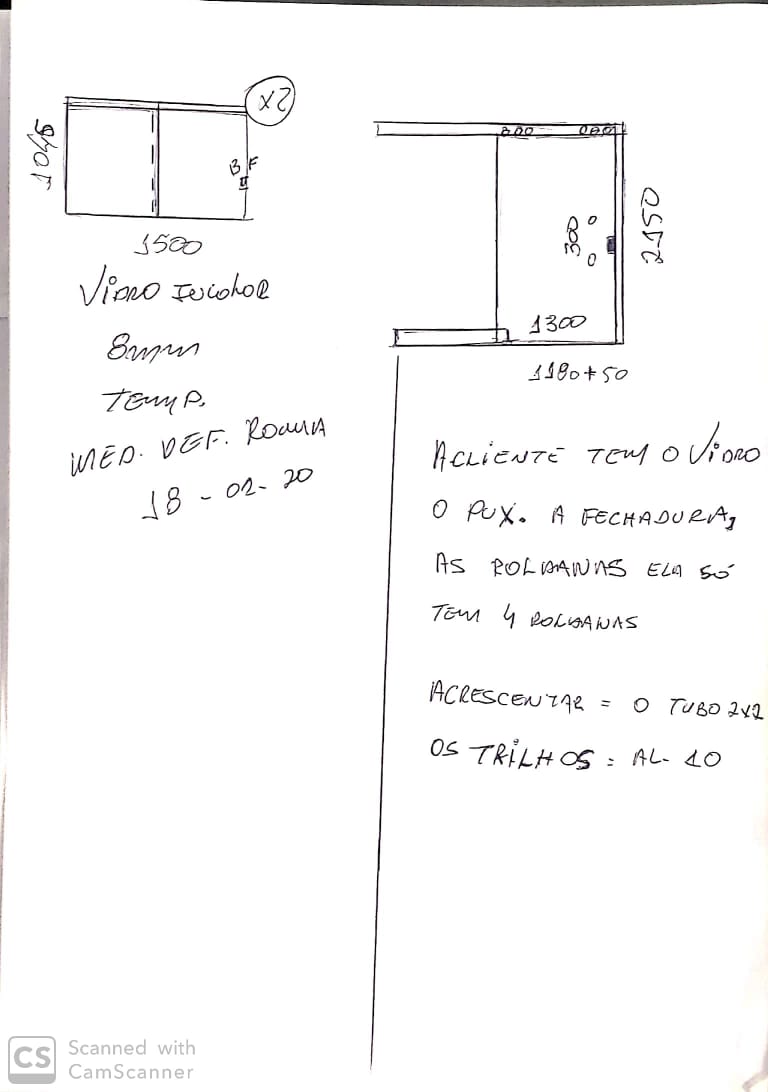 X2
1045
B F
1500
VIDRO INCOLOR
8mm
TEMP.
MED. DEF. ROMA
18 - 02- 20
300
2150
1300
1180+50
A CLIENTE TEM O VIDRO
O PUX. A FECHADURA,
AS ROLDANAS ELA SÓ
TEM 4 ROLDANAS
ACRESCENTAR = O TUBO 2x2
OS TRILHOS: AL- 10
CS Scanned with
CamScanner